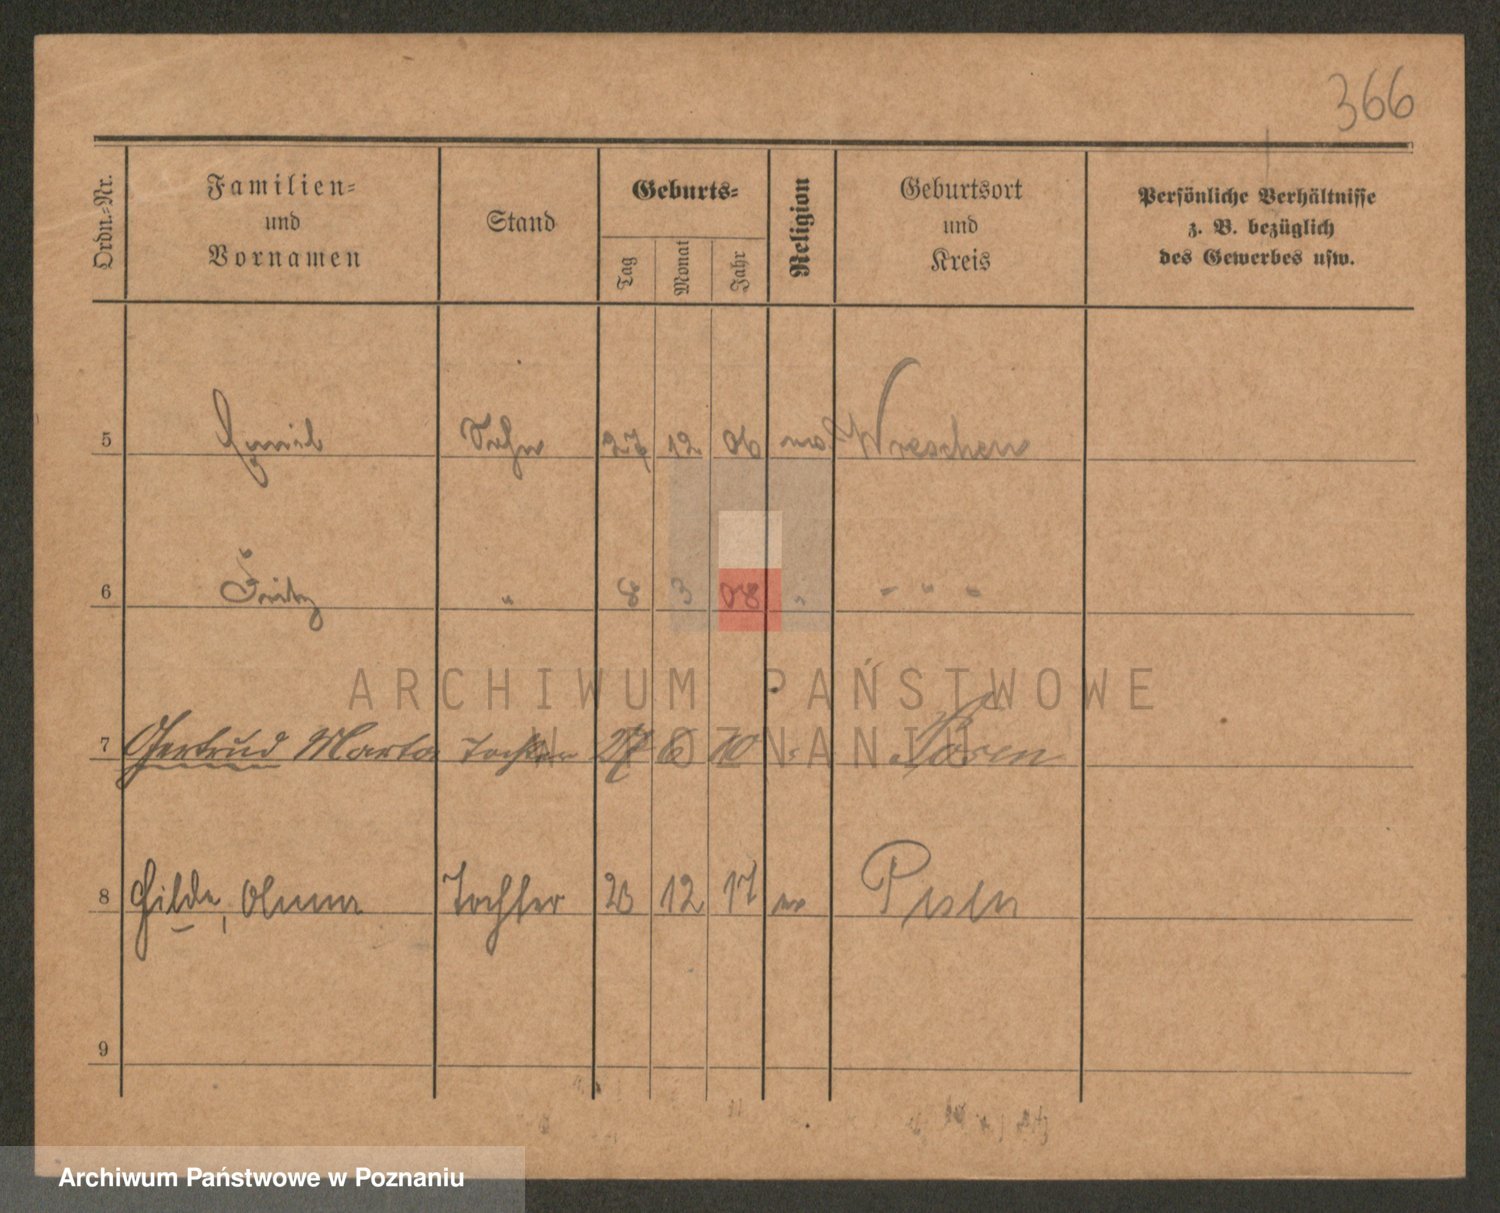 366
Ordn.-Nr.
Familien-
und
Vornamen
Stand
Geburts-
Tag
Monat
Jahr
Religion
Geburtsort
und
Kreis
Persönliche Verhältnisse
z. B. bezüglich
des Gewerbes usw.
5 Sohn 27 12 06 Wreschen
6 Fritz " 8 3 08 " - " -
7 Gertrud Marta Tochter 27 6 10 " Posen
8 Hilde, Tochter 23 12 17 Posen
9
ARCHIWUM PAŃSTWOWE
W POZNANIU
Archiwum Państwowe w Poznaniu